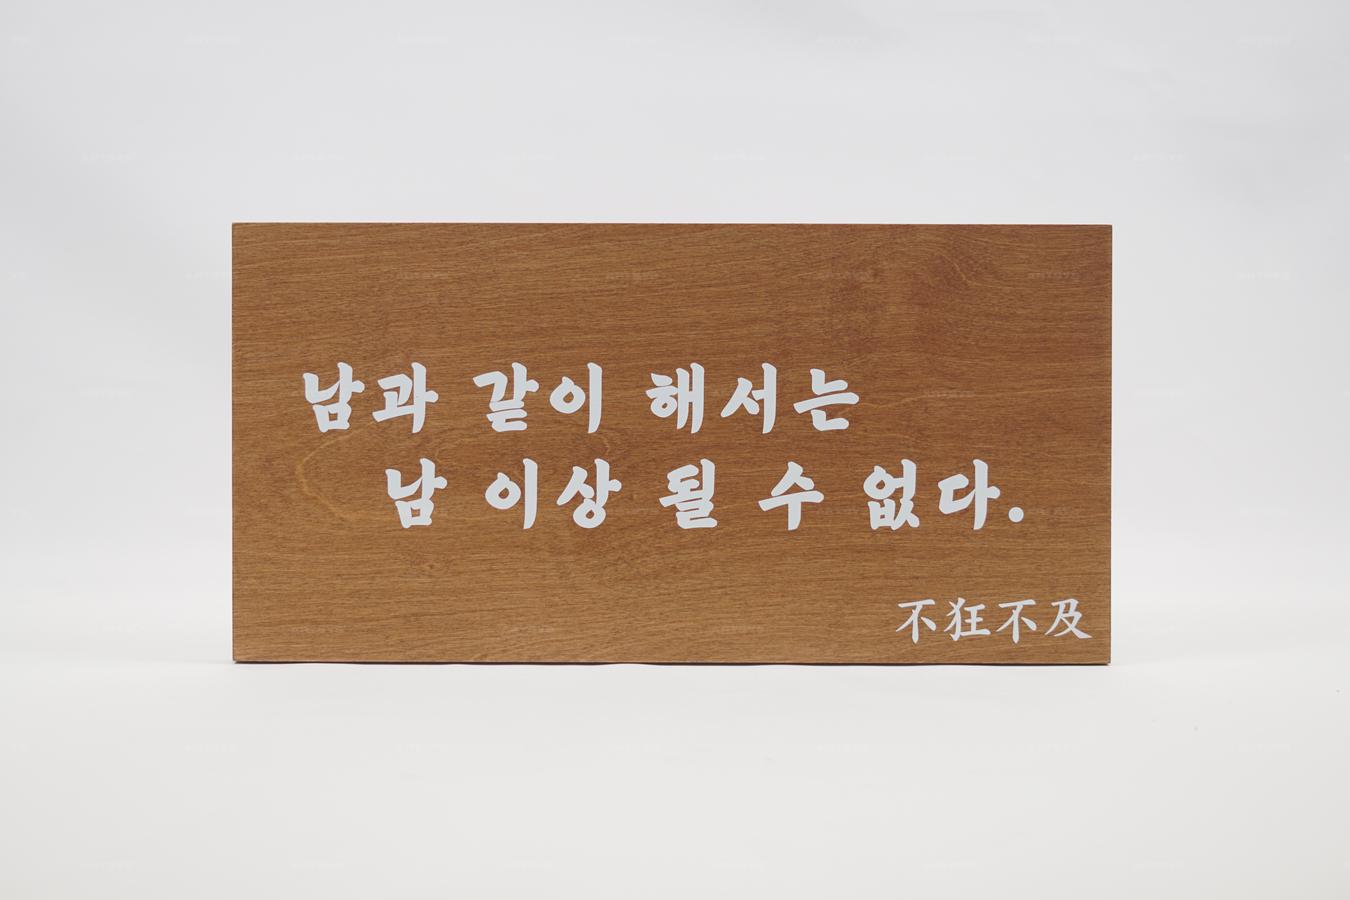 남과 같이 해서는
남 이상 될 수 없다.
不狂不及